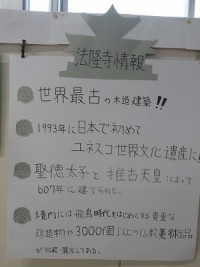 法隆寺情報
世界最古の木造建築!!
1993年に日本で初めて
ユネスコ世界文化遺産に
聖徳太子と推古天皇によって
607年に建てられた。
境内には飛鳥時代をはじめとする貴重な
建築物や3000個以上の仏教美術品
が